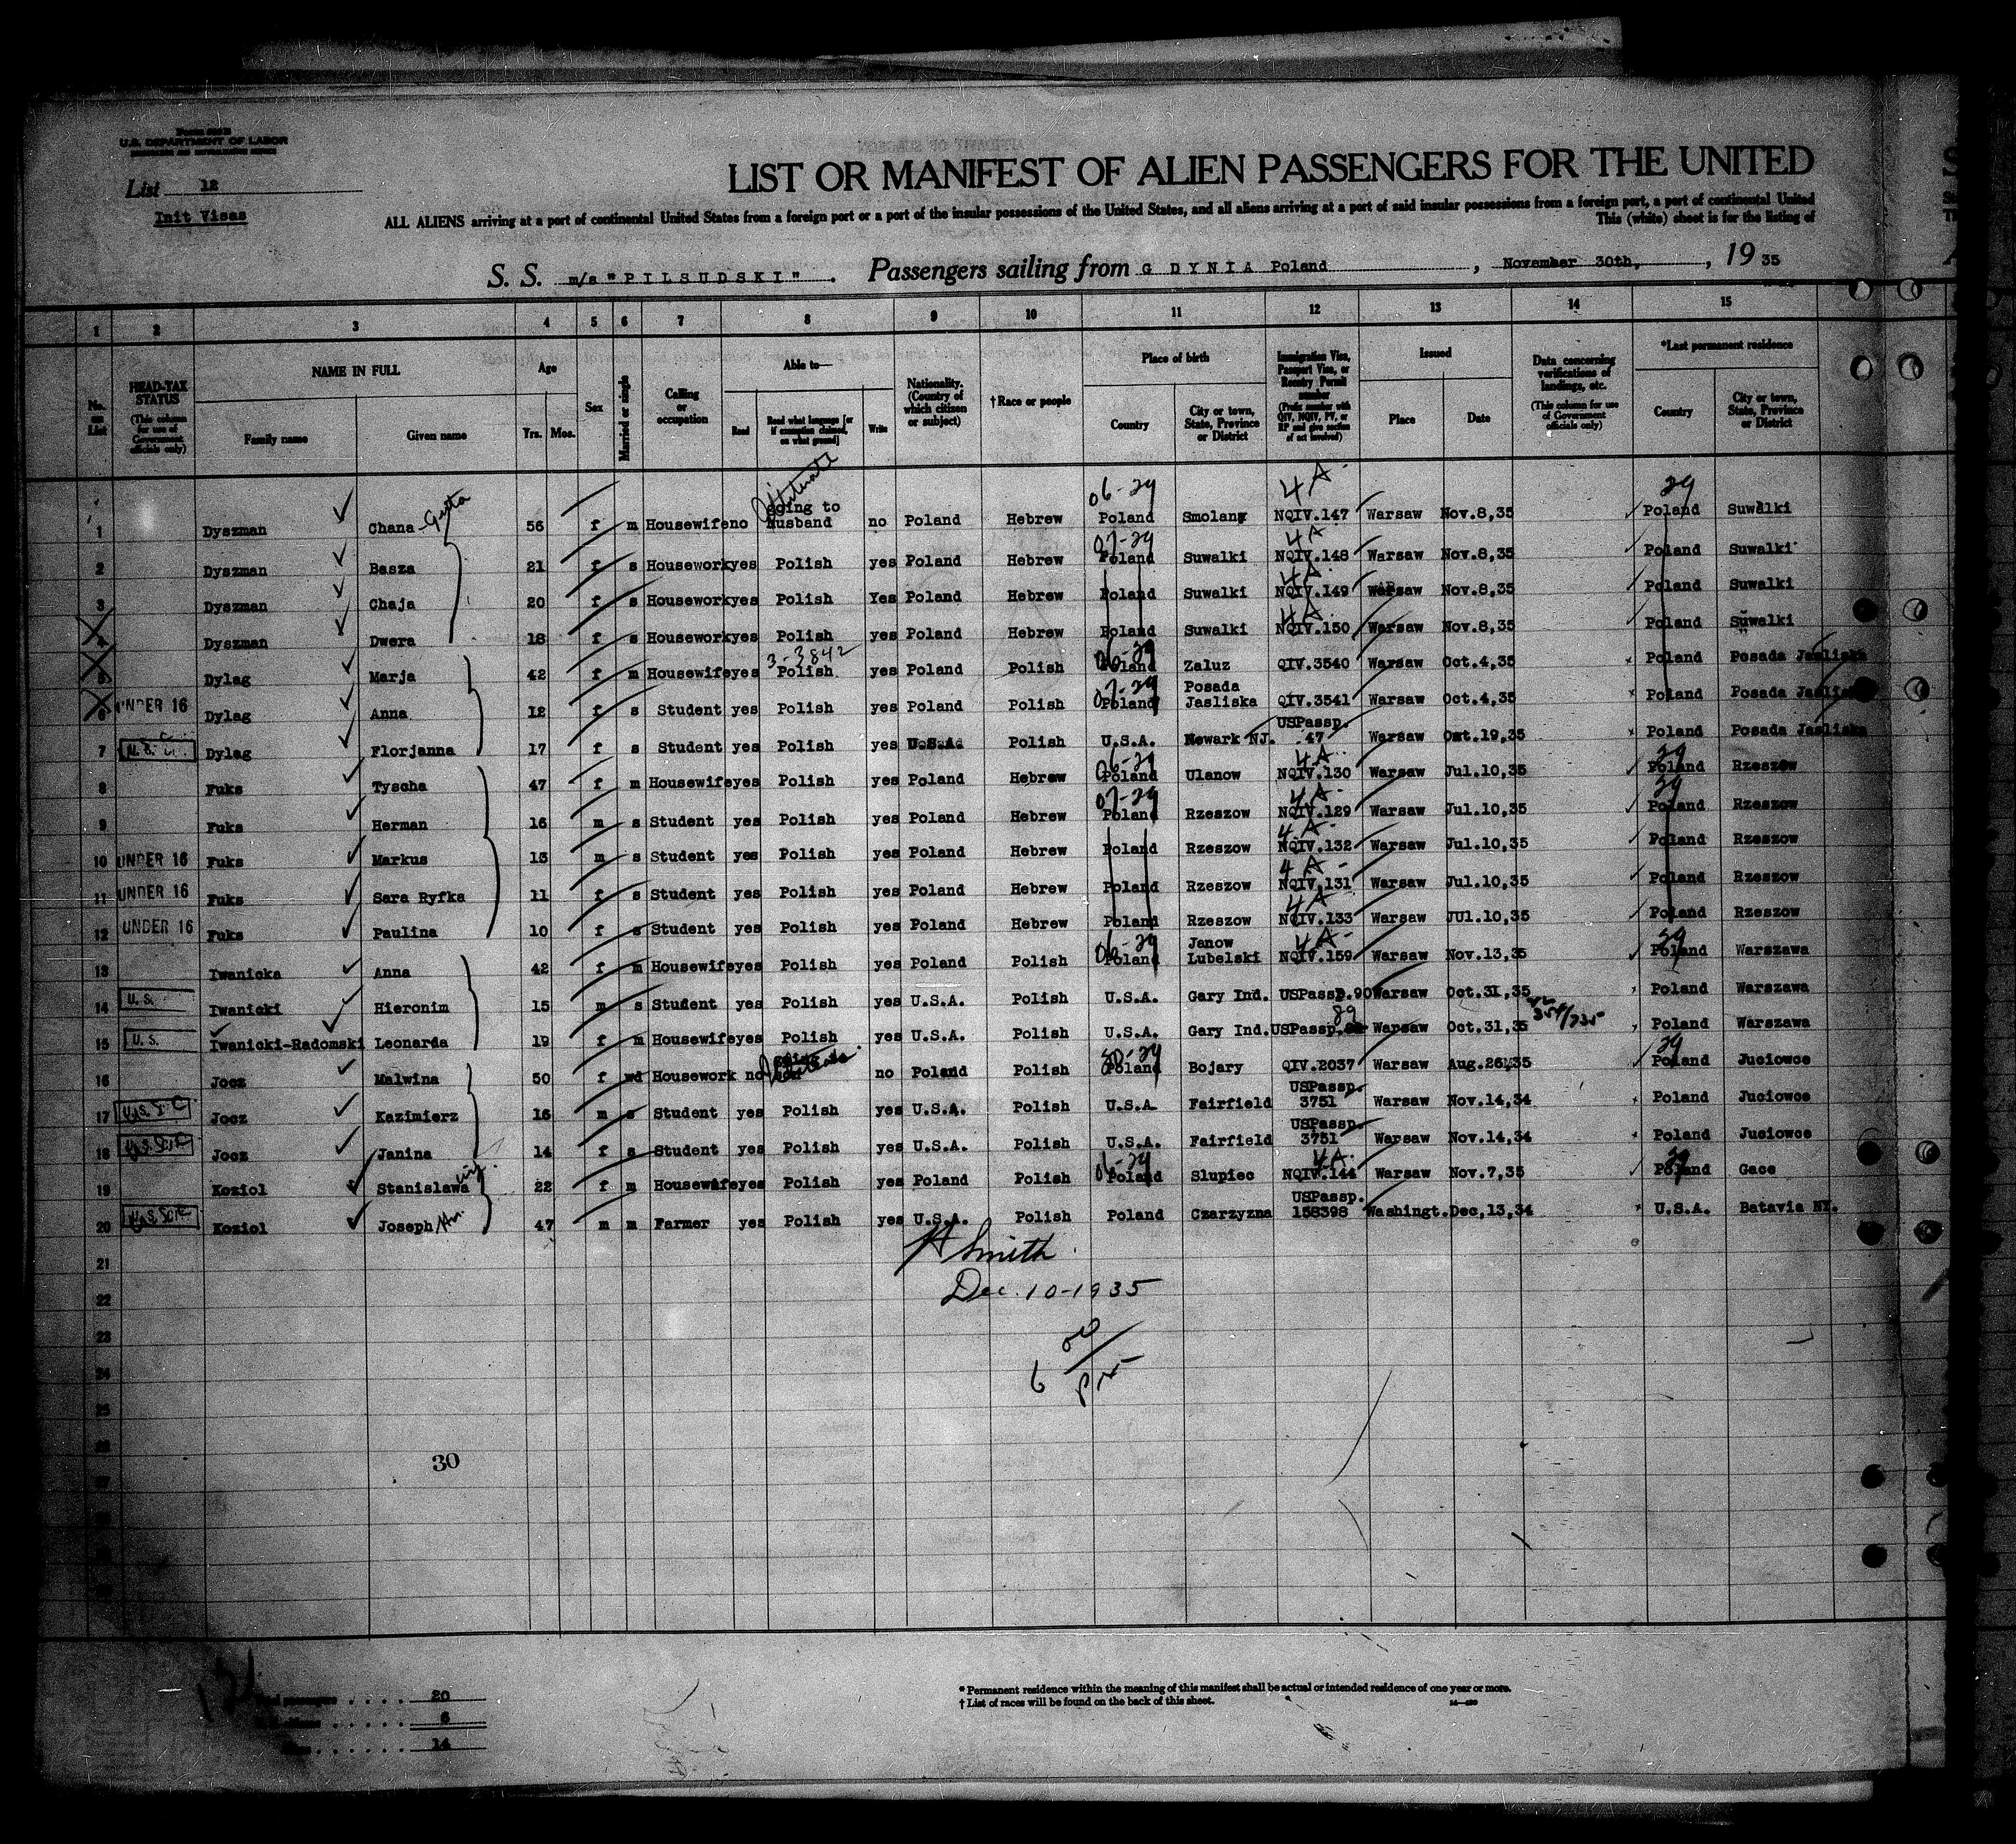 U.S. DEPARTMENT OF LABOR
List 12
Init Visas
LIST OR MANIFEST OF ALIEN PASSENGERS FOR THE UNITED
ALL ALIENS arriving at a port of continental United States from a foreign port or a port of the insular possessions of the United States, and all aliens arriving at a port of said insular possessions from a foreign port, a port of continental United
This (white) sheet is for the listing of
S. S. m/s "PILSUDSKI" . Passengers sailing from G DYNIA Poland , November 30th, , 19 35
1 2 3 4 5 6 7 8 9 10 11 12 13 14 15
No. on List
HEAD-TAX STATUS (This column for use of Government officials only)
NAME IN FULL
Family name Given name
Age
Yrs. Mos.
Sex
Married or single
Calling or occupation
Able to—
Read Read what language [or if exemption claimed, on what ground] Write
Nationality. (Country of which citizen or subject)
† Race or people
Place of birth
Country City or town, State, Province or District
Immigration Visa, Passport Visa, or Reentry Permit number (Prefix number with QIV, NQIV, PV, or RP and give section of act involved)
Issued
Place Date
Data concerning verifications of landings, etc. (This column for use of Government officials only)
*Last permanent residence
Country City or town, State, Province or District
1 Dyszman Chana-Gutta 56 f m Housewife no going to husband Illiterate no Poland Hebrew 06-29 Poland Smolany 4A NQIV.147 Warsaw Nov.8,35 29 Poland Suwalki
2 Dyszman Basza 21 f s Housework yes Polish yes Poland Hebrew 07-29 Poland Suwalki 4A NQIV.148 Warsaw Nov.8,35 Poland Suwalki
3 Dyszman Chaja 20 f s Housework yes Polish Yes Poland Hebrew Poland Suwalki 4A NQIV.149 Warsaw Nov.8,35 Poland Suwalki
4 Dyszman Dwera 18 f s Housework yes Polish yes Poland Hebrew Poland Suwalki 4A NQIV.150 Warsaw Nov.8,35 Poland Suwalki
5 Dylag Marja 42 f m Housewife yes 3-3842 Polish yes Poland Polish 06-29 Poland Zaluz QIV.3540 Warsaw Oct.4,35 Poland Posada Jasliska
6 UNDER 16 Dylag Anna 12 f s Student yes Polish yes Poland Polish 07-29 Poland Posada Jasliska QIV.3541 Warsaw Oct.4,35 Poland Posada Jasliska
7 U.S.C. Dylag Florjanna 17 f s Student yes Polish yes U.S.A. Polish U.S.A. Newark NJ. USPassp. 47 Warsaw Oct.19,35 Poland Posada Jasliska
8 Fuks Tyscha 47 f m Housewife yes Polish yes Poland Hebrew 06-29 Poland Ulanow 4A NQIV.130 Warsaw Jul.10,35 29 Poland Rzeszow
9 Fuks Herman 16 m s Student yes Polish yes Poland Hebrew 07-29 Poland Rzeszow 4A NQIV.129 Warsaw Jul.10,35 29 Poland Rzeszow
10 UNDER 16 Fuks Markus 13 m s Student yes Polish yes Poland Hebrew Poland Rzeszow 4A NQIV.132 Warsaw Jul.10,35 Poland Rzeszow
11 UNDER 16 Fuks Sara Ryfka 11 f s Student yes Polish yes Poland Hebrew Poland Rzeszow 4A NQIV.131 Warsaw Jul.10,35 Poland Rzeszow
12 UNDER 16 Fuks Paulina 10 f s Student yes Polish yes Poland Hebrew Poland Rzeszow 4A NQIV.133 Warsaw JUl.10,35 Poland Rzeszow
13 Iwanicka Anna 42 f m Housewife yes Polish yes Poland Polish 06-29 Poland Janow Lubelski 4A NQIV.159 Warsaw Nov.13,35 29 Poland Warszawa
14 U.S. Iwanicki Hieronim 15 m s Student yes Polish yes U.S.A. Polish U.S.A. Gary Ind. USPassp.90 Warsaw Oct.31,35 Poland Warszawa
15 U.S. Iwanicki-Radomski Leonarda 19 f m Housewife yes Polish yes U.S.A. Polish U.S.A. Gary Ind. USPassp. 89 Warsaw Oct.31,35 Poland Warszawa
16 Jocz Malwina 50 f wd Housework no Illiterate no Poland Polish 30-29 Poland Bojary QIV.2037 Warsaw Aug.26,35 29 Poland Juciowce
17 U.S. Jocz Kazimierz 16 m s Student yes Polish yes U.S.A. Polish U.S.A Fairfield USPassp. 3751 Warsaw Nov.14,34 Poland Juciowce
18 Jocz Janina 14 f s Student yes Polish yes U.S.A. Polish U.S.A. Fairfield USPassp. 3751 Warsaw Nov.14,34 Poland Juciowce
19 Koziol Stanislawa 22 f m Housewife yes Polish yes Poland Polish 06-29 Poland Slupiec 4A NQIV.144 Warsaw Nov.7,35 29 Poland Gace
20 Koziol Joseph 47 m m Farmer yes Polish yes U.S.A. Polish Poland Czarzyzna USPassp. 158398 Washingt. Dec,13,34 U.S.A. Batavia NY.
21
22
23
24
25
H Smith
Dec. 10-1935
6
30
passengers . . . . 20
6
14
* Permanent residence within the meaning of this manifest shall be actual or intended residence of one year or more.
† List of races will be found on the back of this sheet.